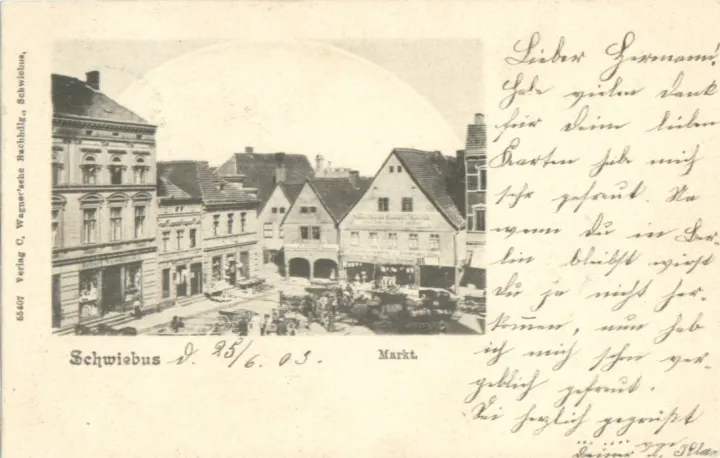 55407 Verlag C. Wagner'sche Buchhdlg., Schwiebus.
Schwiebus d. 25/6. 03. Markt.
Lieber Hermann!
Habe vielen Dank
für Deine lieben
Karten habe mich
sehr gefreut. Na
wenn Du in Ber-
lin bleibst wirst
Du ja nicht her-
kommen, nun hab
ich mich schon ver-
geblich gefreut.
Sei herzlich gegrüßt
von
Deiner